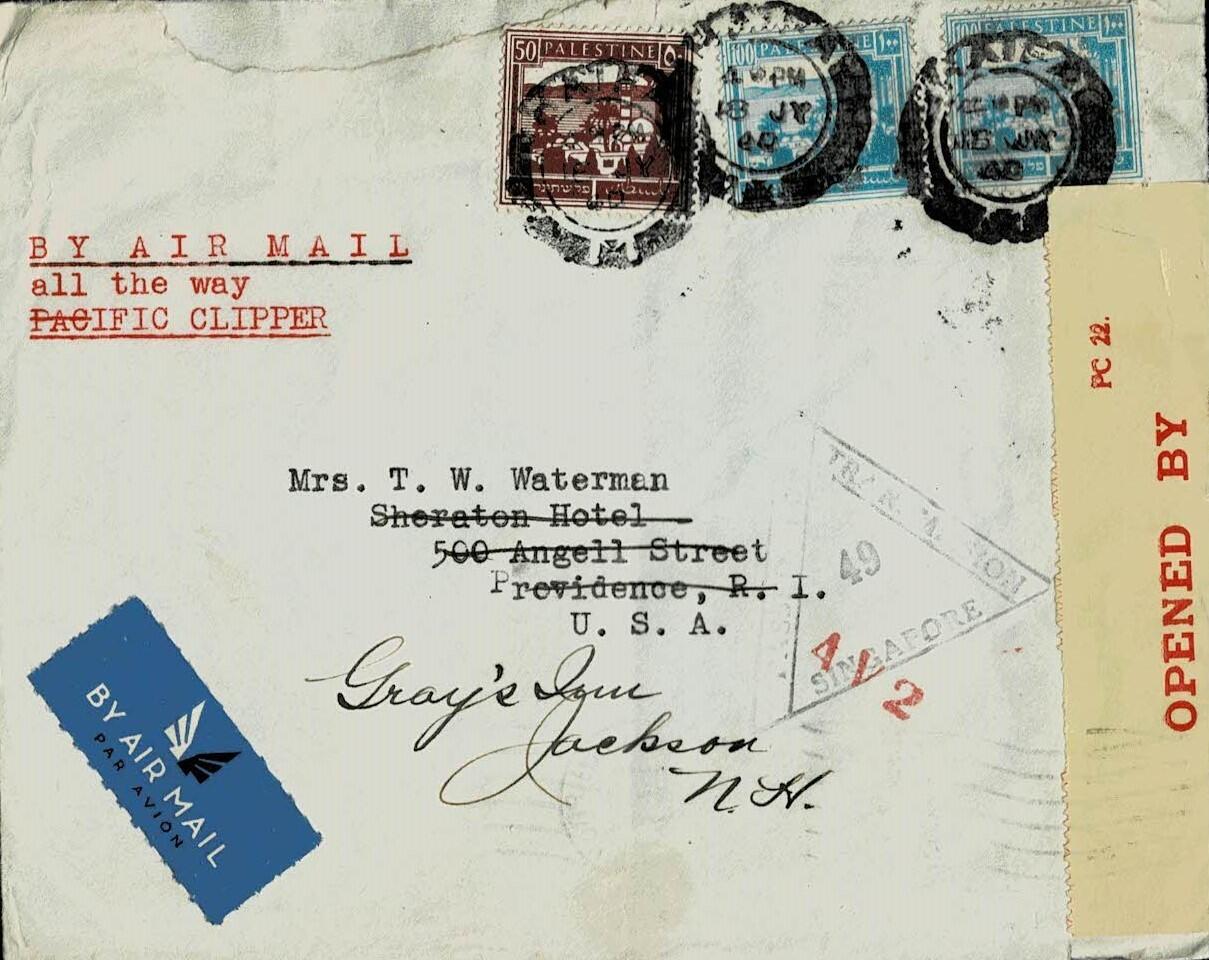 50 PALESTINE ٥٠
100 PALESTINE ١٠٠
100 PALESTINE ١٠٠
פלשתינה
فلسطين
4 PM
18 JY
40
18 JY
40
BY AIR MAIL
all the way
PACIFIC CLIPPER
PC 22.
OPENED BY
Mrs. T. W. Waterman
Sheraton Hotel
500 Angell Street
Providence, R. I.
U. S. A.
Gray's Inn
Jackson
N. H.
49
SINGAPORE
AV2
BY AIR MAIL
PAR AVION